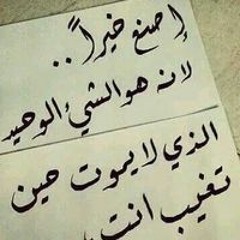 إصنع خيراً..
لانه هو الشيء الوحيد
الذي لا يموت حين
تغيب انت..